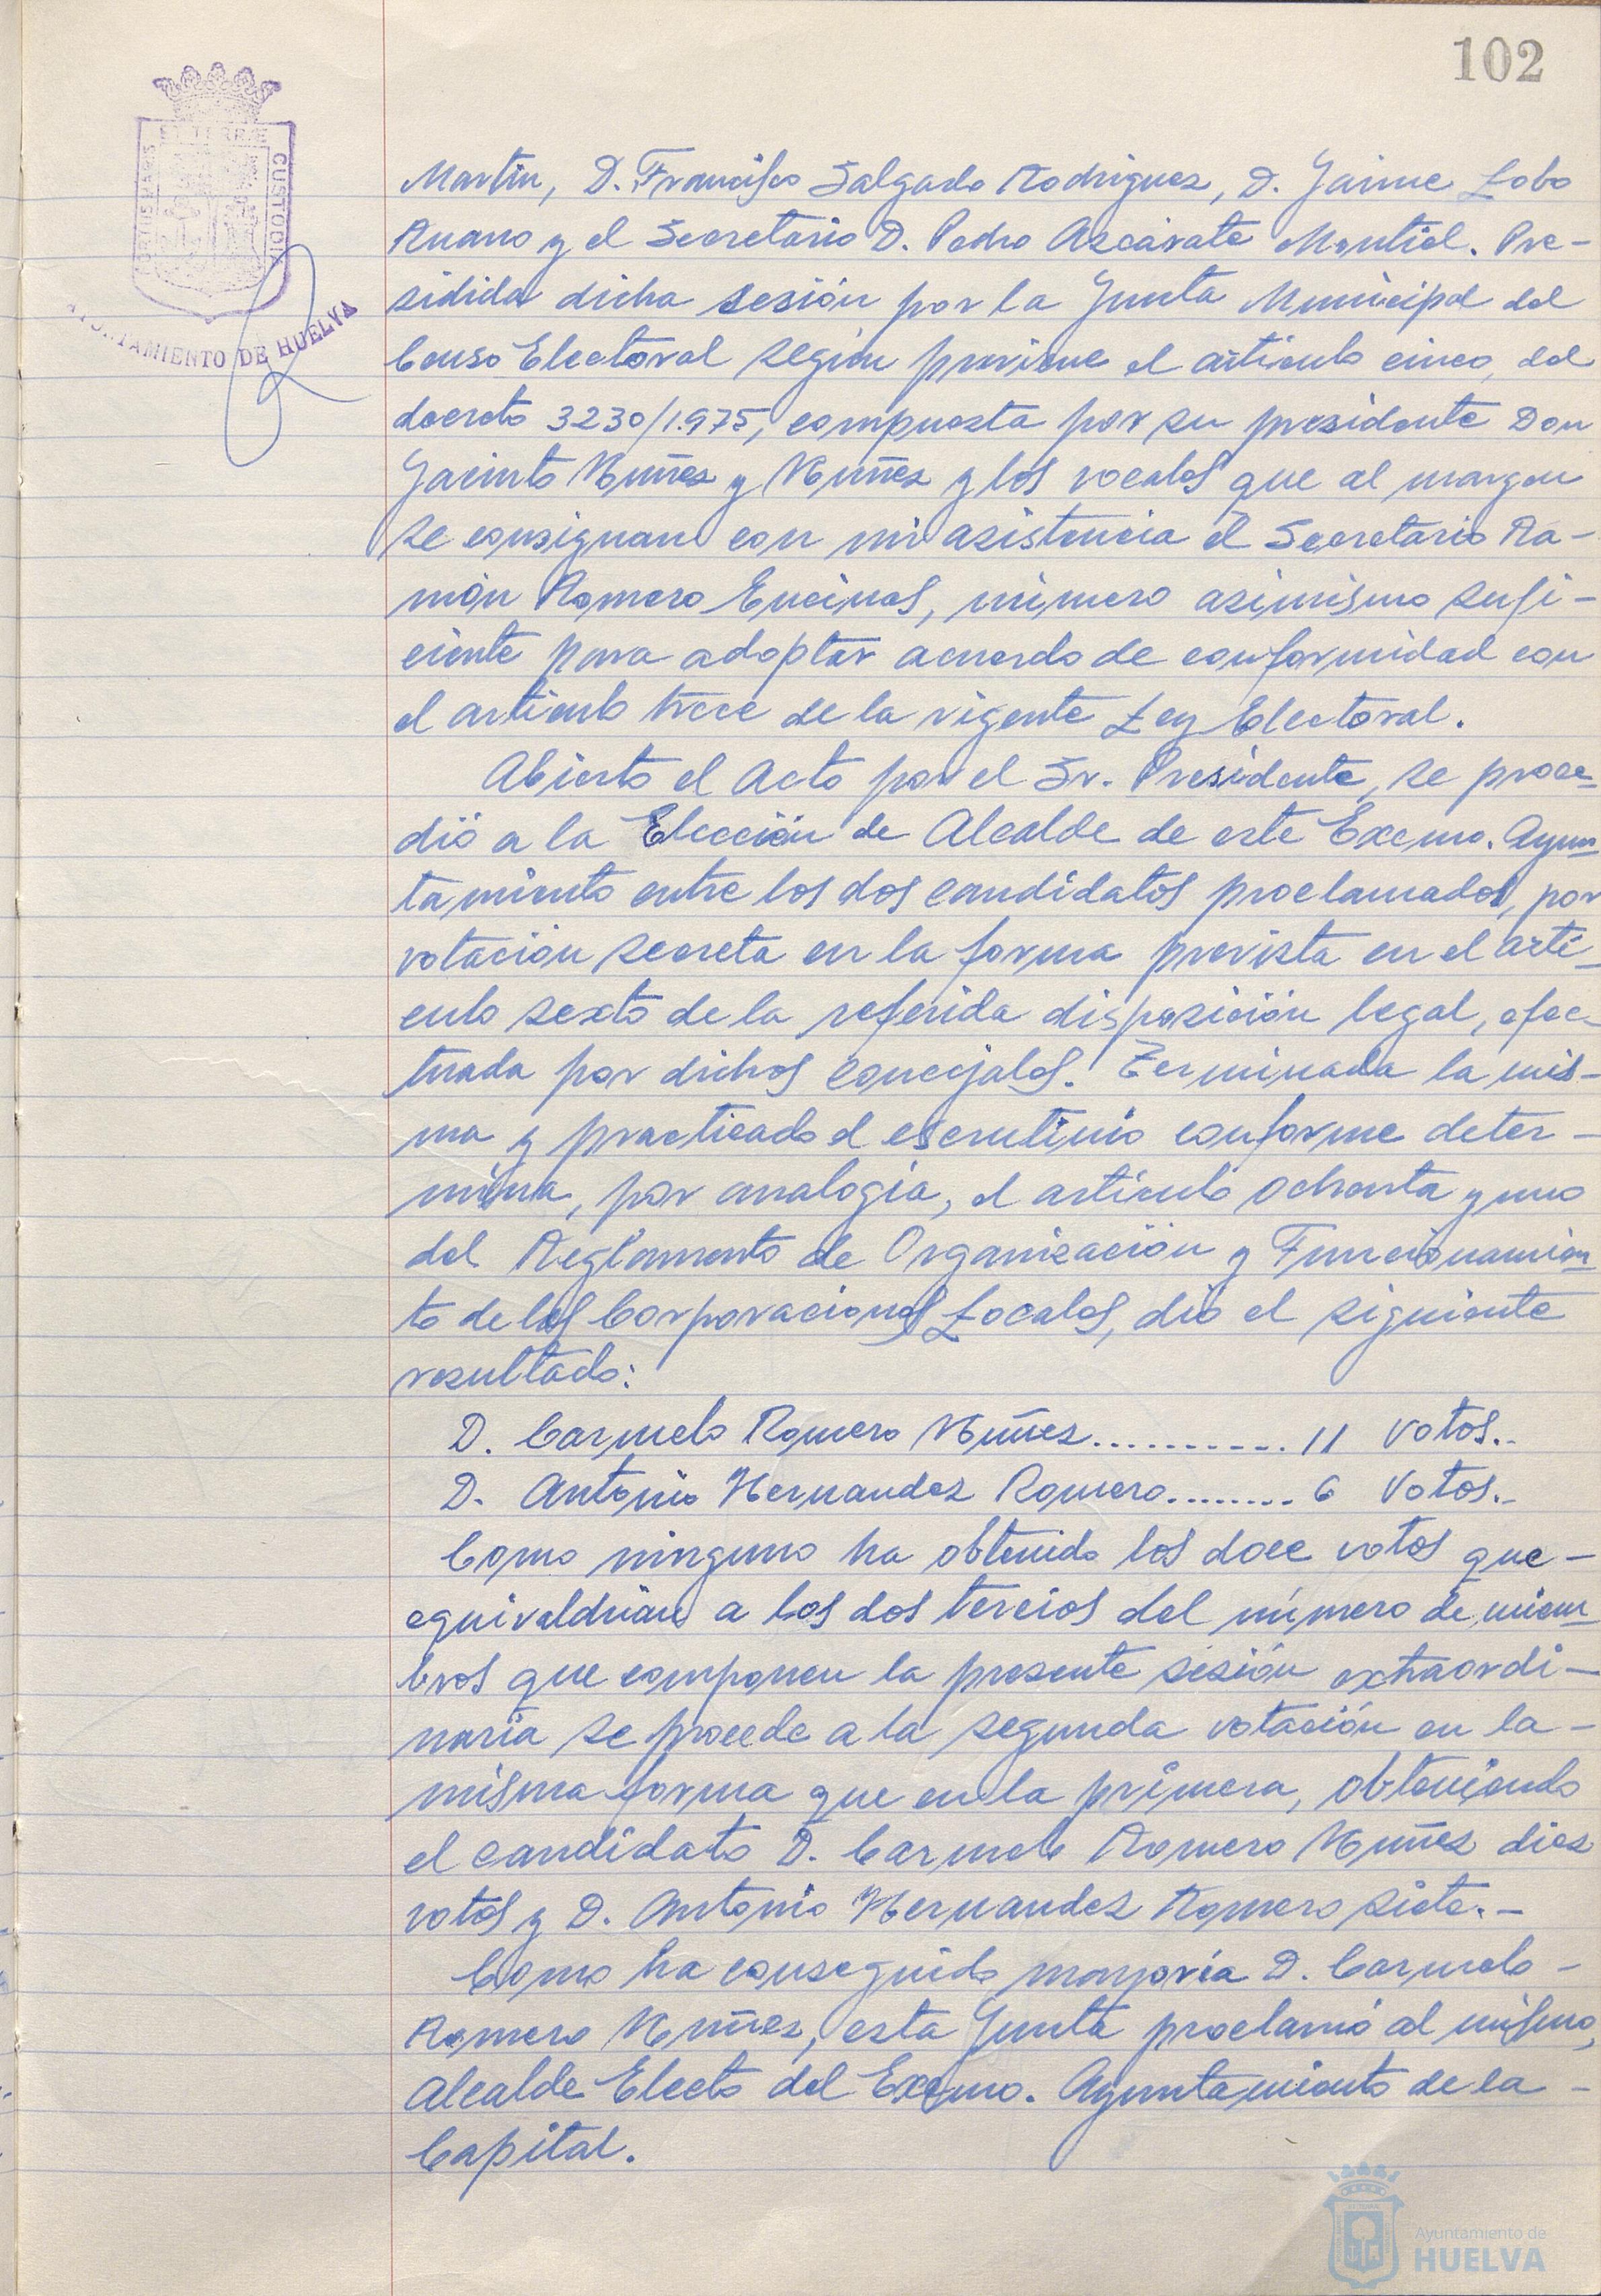 102
PORTUS MARIS ET TERRÆ CUSTODIA
AYUNTAMIENTO DE HUELVA
Martín, D. Francisco Salgado Rodriguez, D. Jaime Lobo
Ruano y el Secretario D. Pedro Azcárate Montiel. Pre-
sidida dicha sesión por la Junta Municipal del
Censo Electoral según previene el artículo cinco, del
decreto 3230/1.975, compuesta por su presidente Don
Jacinto Nuñez y Nuñez y los vocales que al margen
se consignan con mi asistencia el Secretario Ra-
món Romero Encinas, número asimismo sufi-
ciente para adoptar acuerdo de conformidad con
el artículo trece de la vigente Ley Electoral.
Abierto el Acto por el Sr. Presidente, se proce-
dió a la Elección de Alcalde de este Excmo. Ayun-
tamiento entre los dos candidatos proclamados, por
votación secreta en la forma prevista en el artí-
culo sexto de la referida disposición legal, efec-
tuada por dichos concejales. Terminada la mis-
ma y practicado el escrutinio conforme deter-
mina, por analogía, el artículo ochenta y uno
del Reglamento de Organización y Funcionamien-
to de las Corporaciones Locales, dió el siguiente
resultado:
D. Carmelo Romero Nuñez........... 11 Votos.-
D. Antonio Hernandez Romero........ 6 Votos.-
Como ninguno ha obtenido los doce votos que-
equivaldrían a los dos tercios del número de miem-
bros que componen la presente sesión extraordi-
naria se procede a la segunda votación en la-
misma forma que en la primera, obteniendo
el candidato D. Carmelo Romero Nuñez diez
votos y D. Antonio Hernandez Romero siete.-
Como ha conseguido mayoría D. Carmelo-
Romero Nuñez, esta Junta proclamó al mismo,
Alcalde Electo del Excmo. Ayuntamiento de la-
Capital.
Ayuntamiento de
HUELVA